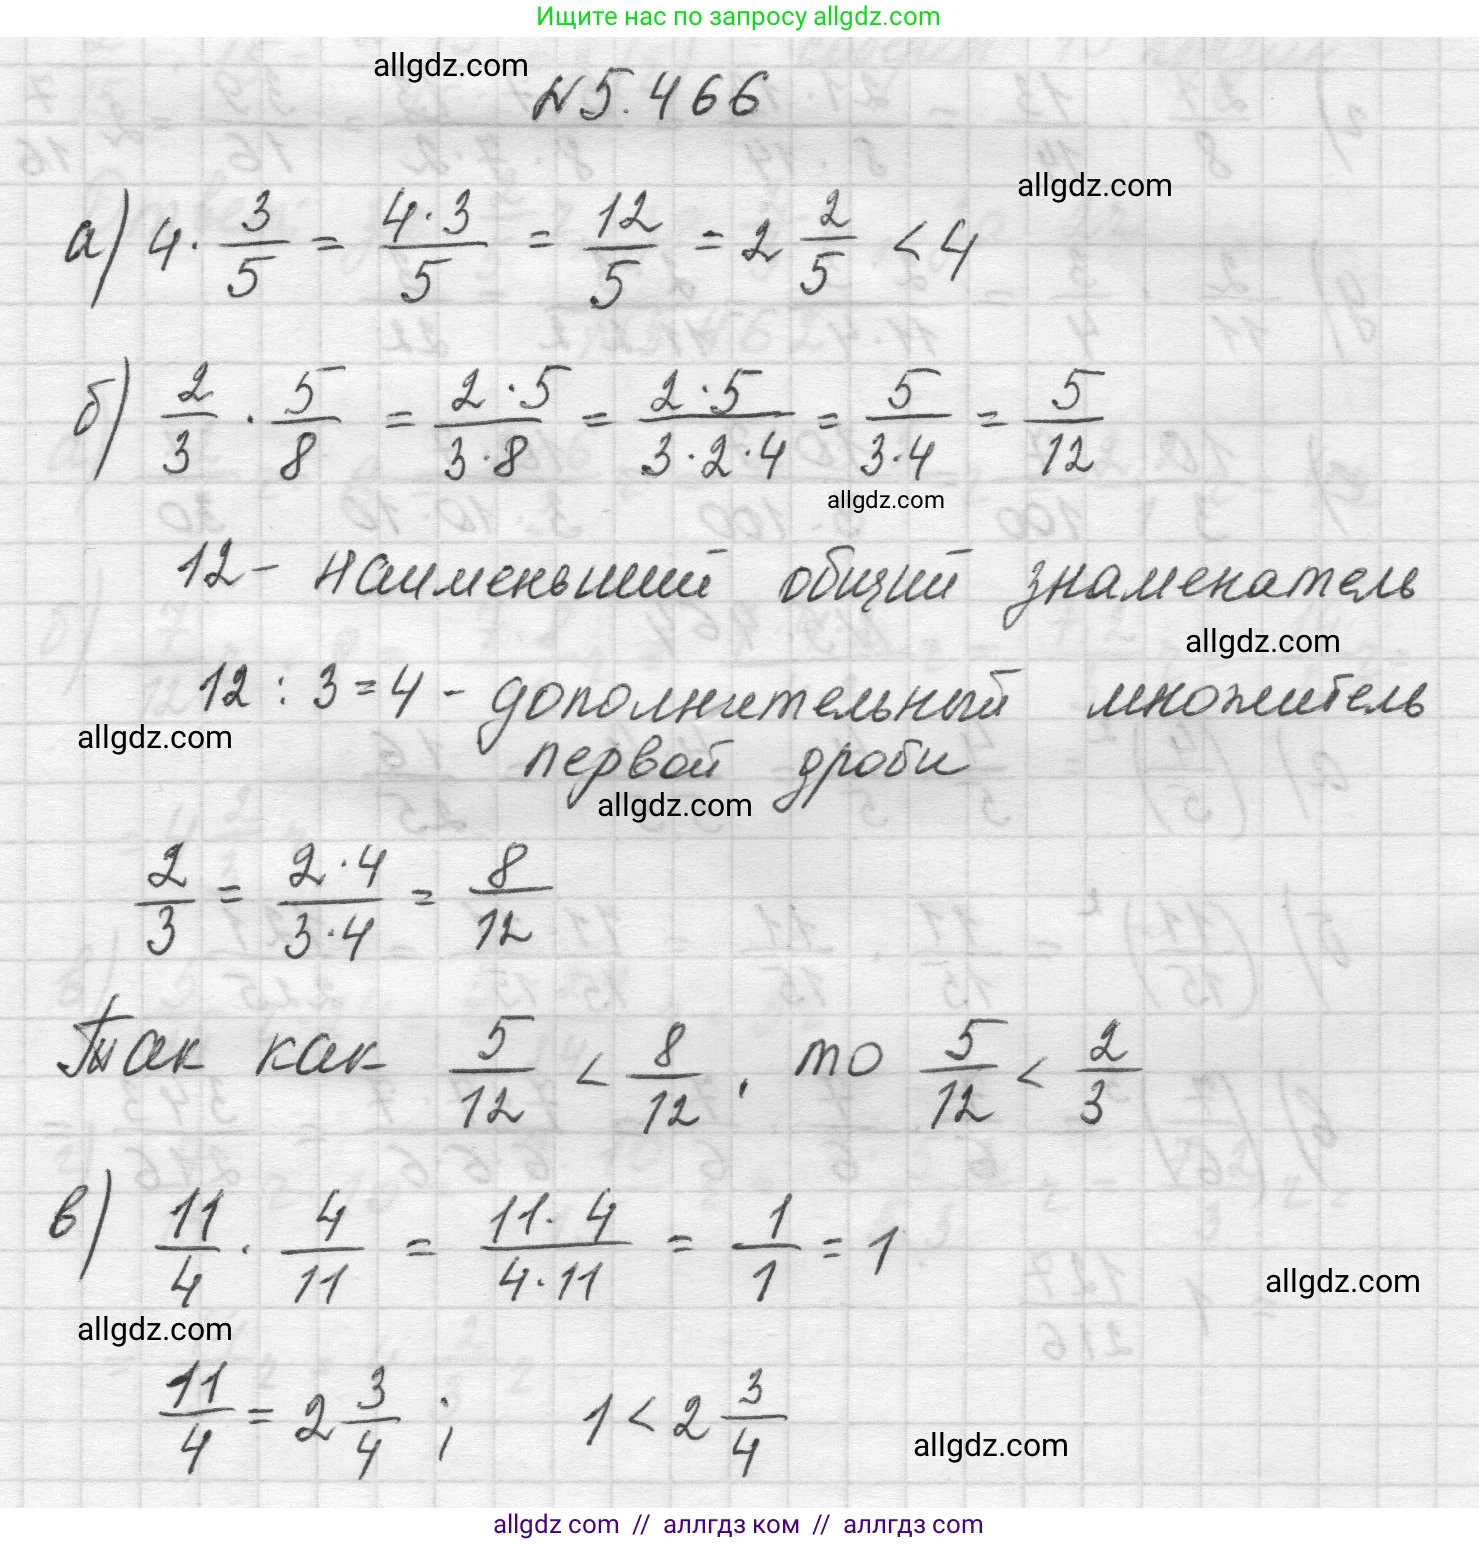 Ищите нас по запросу allgdz.com
allgdz.com
№5.466
allgdz.com
а) 4 · 3/5 = 4·3/5 = 12/5 = 2 2/5 < 4
б) 2/3 · 5/8 = 2·5/3·8 = 2·5/3·2·4 = 5/3·4 = 5/12
allgdz.com
12 – наименьший общий знаменатель
allgdz.com
12 : 3 = 4 – дополнительный множитель
allgdz.com
первой дроби
allgdz.com
2/3 = 2·4/3·4 = 8/12
Так как 5/12 < 8/12, то 5/12 < 2/3
в) 11/4 · 4/11 = 11·4/4·11 = 1/1 = 1
allgdz.com
allgdz.com
11/4 = 2 3/4 ; 1 < 2 3/4
allgdz.com
allgdz com // аллгдз ком // аллгдз com